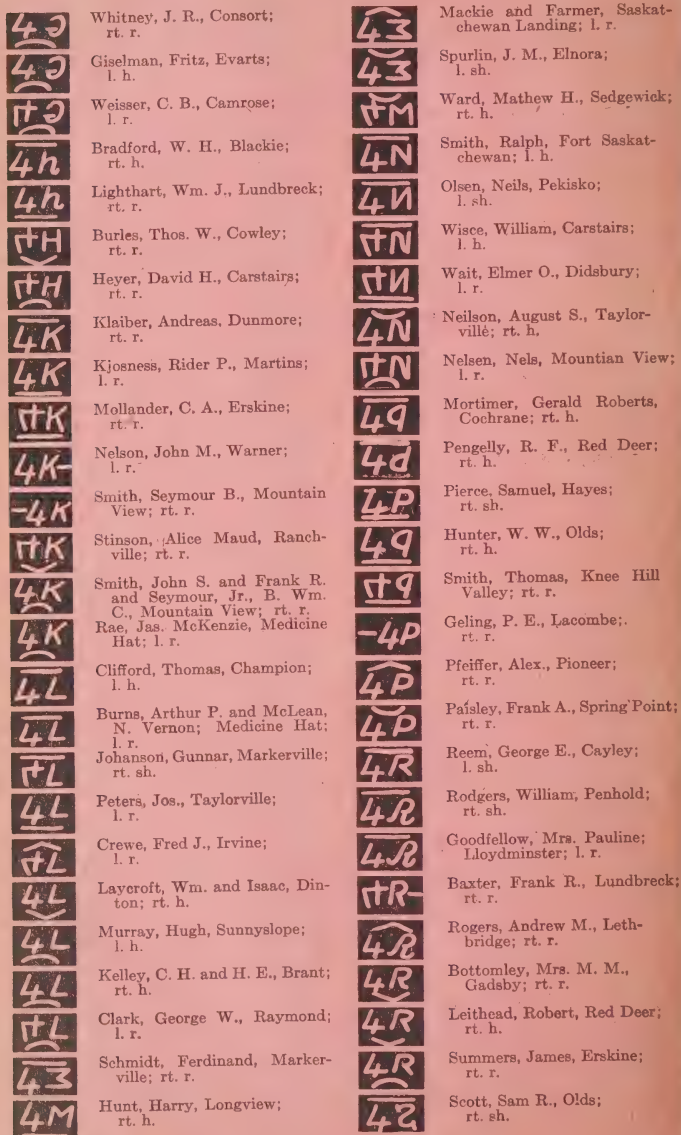 Whitney, J. R., Consort;
rt. r.
Giselman, Fritz, Evarts;
l. h.
Weisser, C. B., Camrose;
l. r.
Bradford, W. H., Blackie;
rt. h.
Lighthart, Wm. J., Lundbreck;
rt. r.
Burles, Thos. W., Cowley;
rt. r.
Heyer, David H., Carstairs;
rt. r.
Klaiber, Andreas, Dunmore;
rt. r.
Kjosness, Rider P., Martins;
l. r.
Mollander, C. A., Erskine;
rt. r.
Nelson, John M., Warner;
l. r.
Smith, Seymour B., Mountain
View; rt. r.
Stinson, Alice Maud, Ranch-
ville; rt. r.
Smith, John S. and Frank R.
and Seymour, Jr., B. Wm.
C., Mountain View; rt. r.
Rae, Jas. McKenzie, Medicine
Hat; l. r.
Clifford, Thomas, Champion;
l. h.
Burns, Arthur P. and McLean,
N. Vernon; Medicine Hat;
l. r.
Johanson, Gunnar, Markerville;
rt. sh.
Peters, Jos., Taylorville;
l. r.
Crewe, Fred J., Irvine;
l. r.
Laycroft, Wm. and Isaac, Din-
ton; rt. h.
Murray, Hugh, Sunnyslope;
l. h.
Kelley, C. H. and H. E., Brant;
rt. h.
Clark, George W., Raymond;
l. r.
Schmidt, Ferdinand, Marker-
ville; rt. r.
Hunt, Harry, Longview;
rt. h.
Mackie and Farmer, Saskat-
chewan Landing; l. r.
Spurlin, J. M., Elnora;
l. sh.
Ward, Mathew H., Sedgewick;
rt. h.
Smith, Ralph, Fort Saskat-
chewan; l. h.
Olsen, Neils, Pekisko;
l. sh.
Wisce, William, Carstairs;
l. h.
Wait, Elmer O., Didsbury;
l. r.
Neilson, August S., Taylor-
ville; rt. h.
Nelsen, Nels, Mountian View;
l. r.
Mortimer, Gerald Roberts,
Cochrane; rt. h.
Pengelly, R. F., Red Deer;
rt. h.
Pierce, Samuel, Hayes;
rt. sh.
Hunter, W. W., Olds;
rt. h.
Smith, Thomas, Knee Hill
Valley; rt. r.
Geling, P. E., Lacombe;
rt. r.
Pfeiffer, Alex., Pioneer;
rt. r.
Paisley, Frank A., Spring Point;
rt. r.
Reem, George E., Cayley;
l. sh.
Rodgers, William, Penhold;
rt. sh.
Goodfellow, Mrs. Pauline;
Lloydminster; l. r.
Baxter, Frank R., Lundbreck;
rt. r.
Rogers, Andrew M., Leth-
bridge; rt. r.
Bottomley, Mrs. M. M.,
Gadsby; rt. r.
Leithead, Robert, Red Deer;
rt. h.
Summers, James, Erskine;
rt. r.
Scott, Sam R., Olds;
rt. sh.